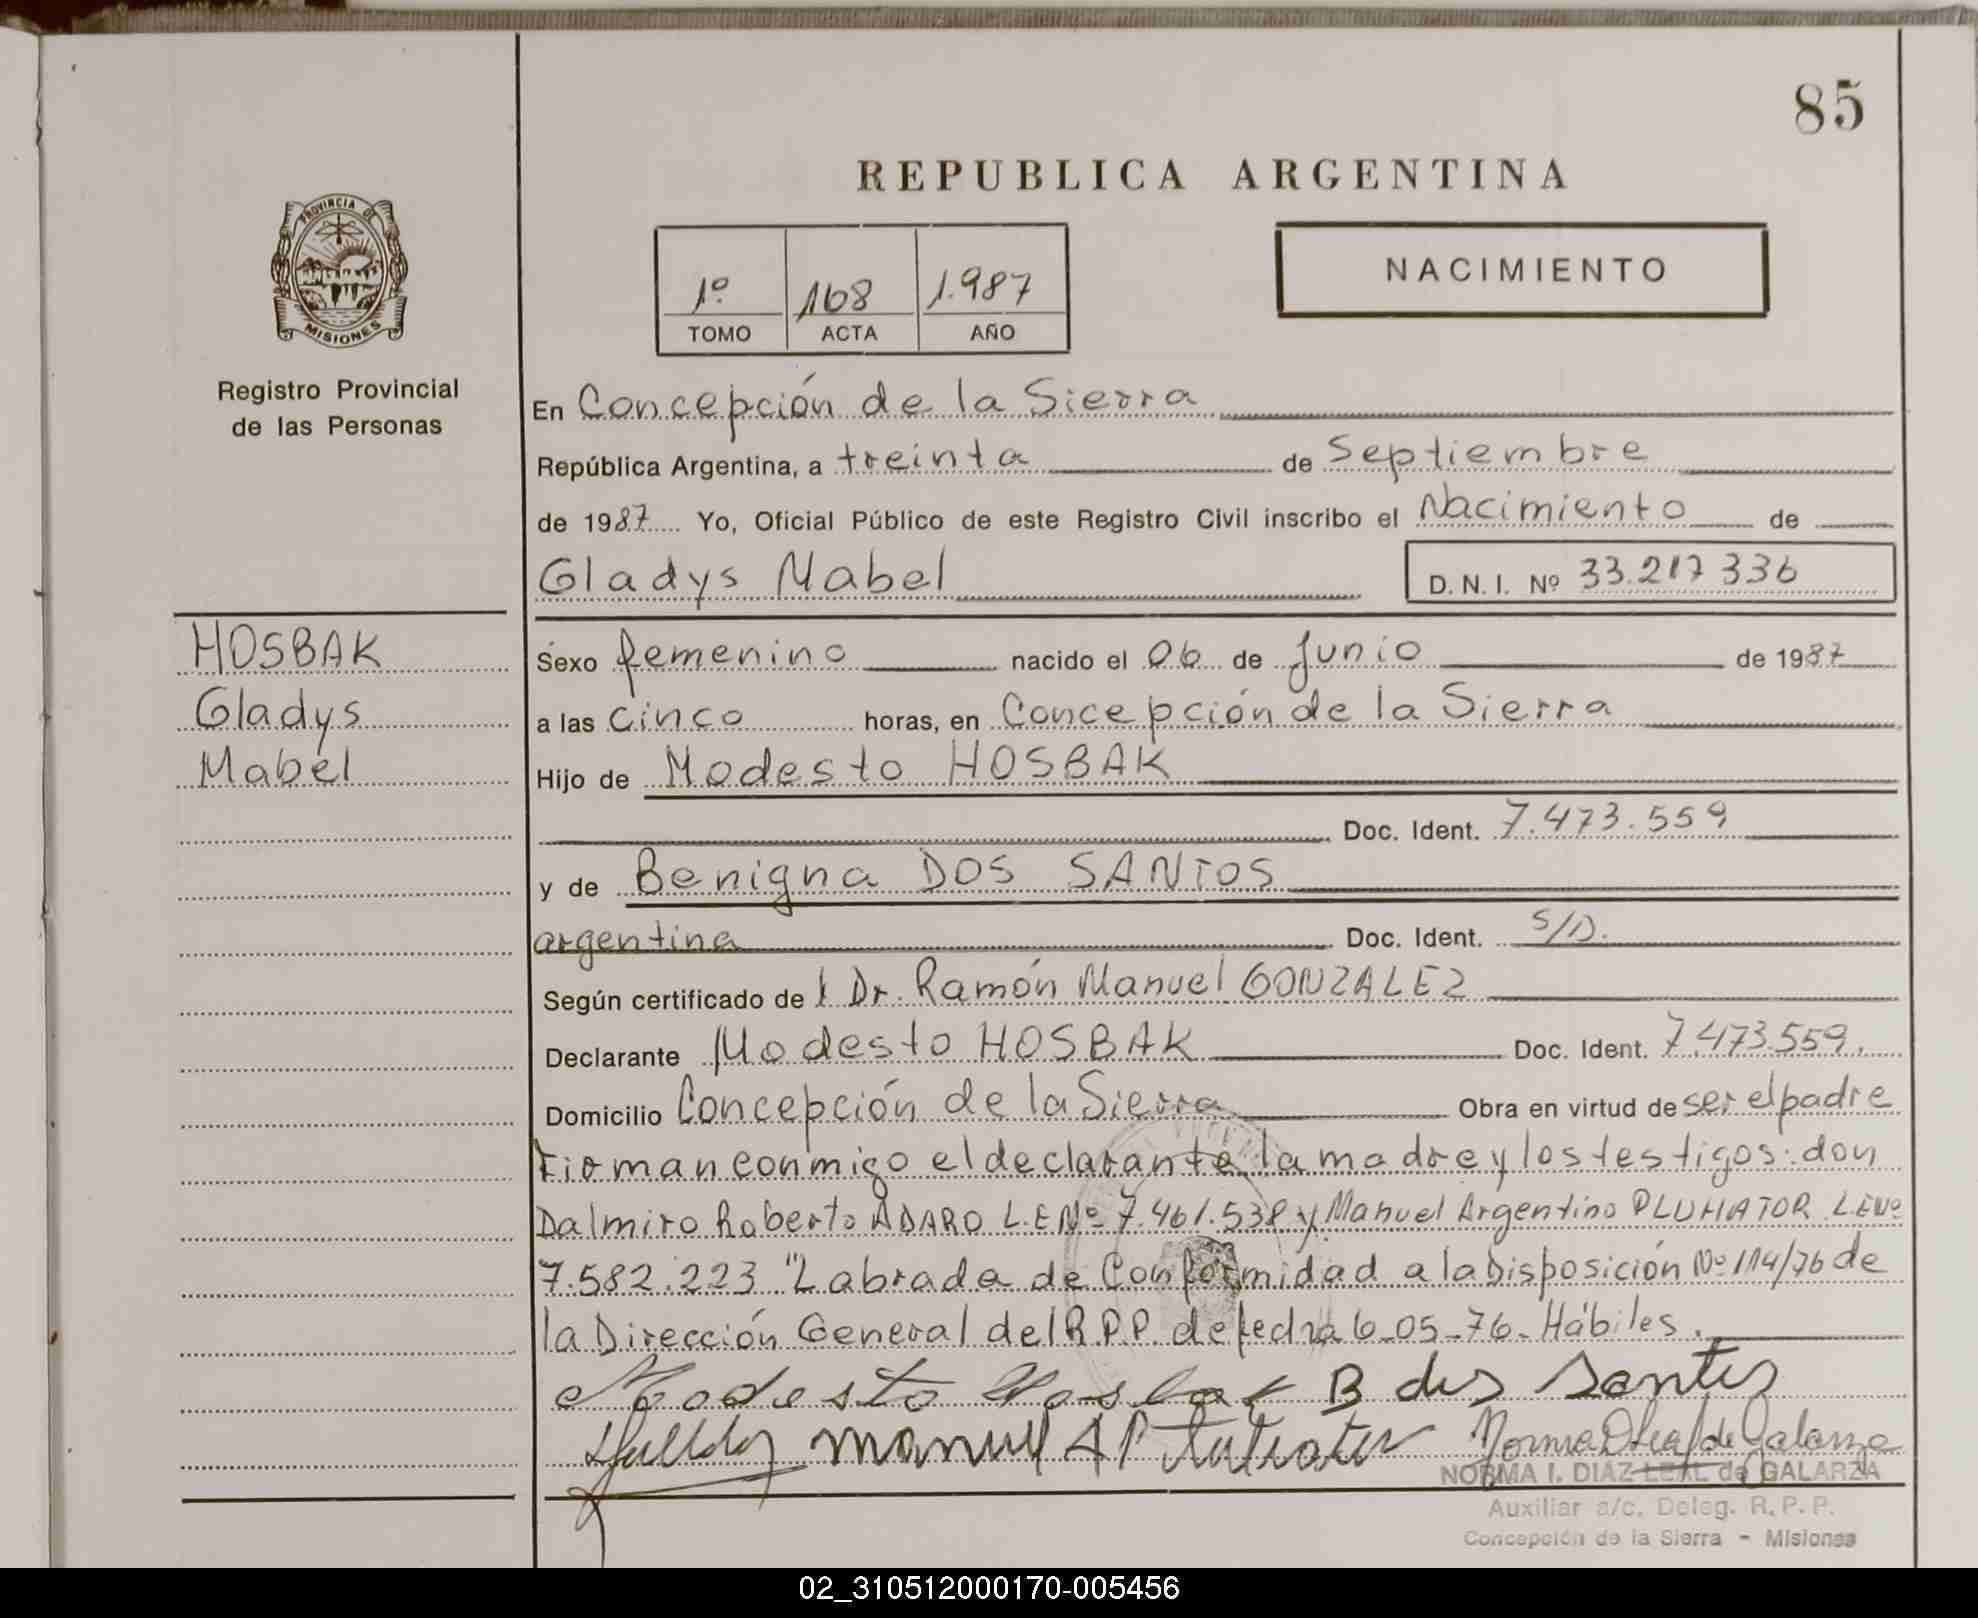 85
REPUBLICA ARGENTINA
PROVINCIA DE
MISIONES
Registro Provincial
de las Personas
1º 168 1.987
TOMO ACTA AÑO
NACIMIENTO
En Concepción de la Sierra
República Argentina, a treinta de Septiembre
de 1987 Yo, Oficial Público de este Registro Civil inscribo el Nacimiento de
Gladys Mabel D. N. I. Nº 33.217 336
HOSBAK
Gladys
Mabel
Sexo femenino nacido el 06 de Junio de 1987
a las cinco horas, en Concepción de la Sierra
Hijo de Modesto HOSBAK
Doc. Ident. 7.473.559
y de Benigna DOS SANTOS
argentina Doc. Ident. S/D.
Según certificado del Dr. Ramón Manuel GONZALEZ
Declarante Modesto HOSBAK Doc. Ident. 7.473.559.
Domicilio Concepción de la Sierra Obra en virtud de ser el padre
Firman conmigo el declarante, la madre y los testigos: don
Dalmiro Roberto ADARO L.E Nº 7.461.538 y Manuel Argentino L.E Nº
7.582.223 "Labrada de Conformidad a la Disposición Nº 114/76 de
la Dirección General del R.P.P. de fecha 6-05-76- Hábiles.
Modesto Hosbak B dos Santos
Manuel A P
NORMA I. DIAZ LEAL de GALARZA
Auxiliar a/c. Deleg. R. P. P.
Concepción de la Sierra - Misiones
02_310512000170-005456